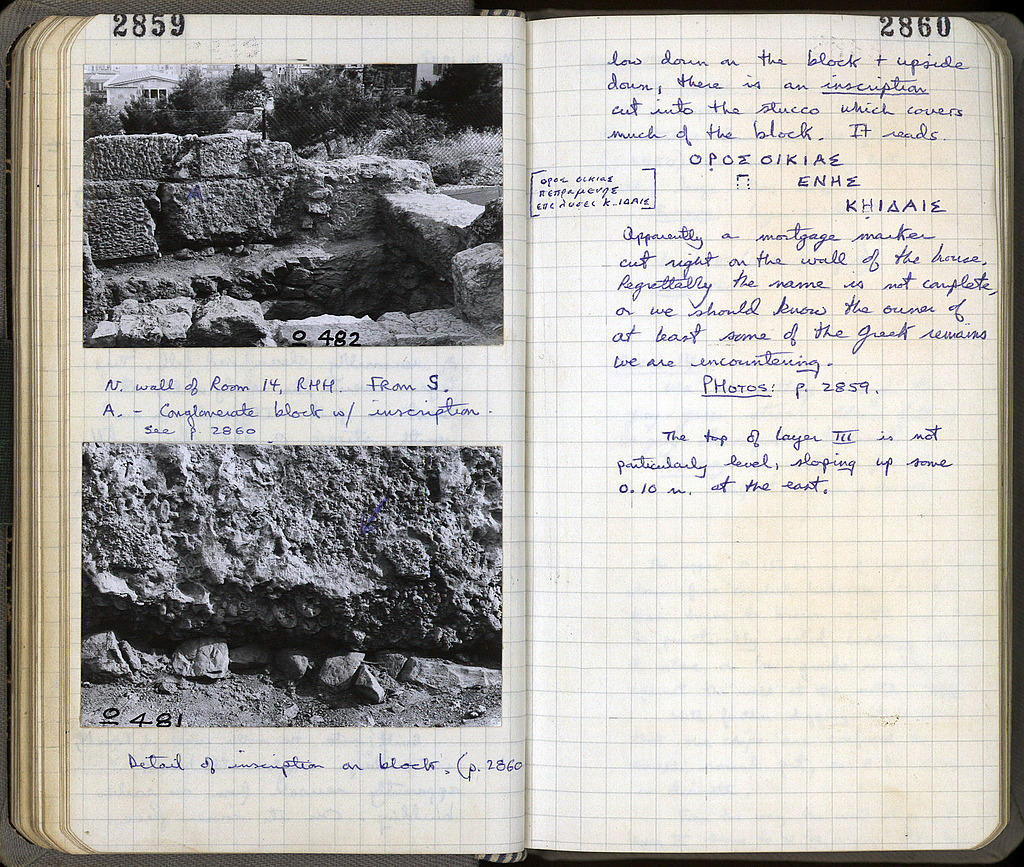 2859
O 482
N. wall of Room 14, RHH. From S.
A. - Conglomerate block w/ inscription.
See p. 2860
O 481
Detail of inscription on block. (p. 2860
2860
low down on the block + upside
down, there is an inscription
cut into the stucco which covers
much of the block. It reads.
ΟΡΟΣ ΟΙΚΙΑΣ
Π ΕΝΗΣ
ΚΗΙΔΑΙΣ
ΟΡΟΣ ΟΙΚΙΑΣ
ΠΕΠΡΑΜΕΝΗΣ
ΕΠΙ ΛΥΣΕΙ Κ..ΙΔΑΙΣ
Apparently a mortgage marker
cut right on the wall of the house.
Regrettably the name is not complete,
or we should know the owner of
at least some of the Greek remains
we are encountering.
PHOTOS: p. 2859.
The top of layer III is not
particularly level, sloping up some
0.10 m. at the east.